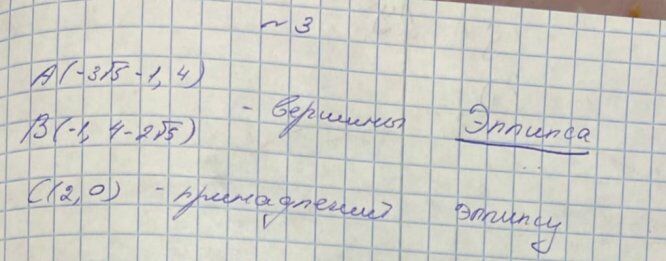 ~ 3
A(-3√5 - 1, 4)
- вершины Эллипса
B(-1, 4-2√5)
C(2,0) - принадлежит эллипсу